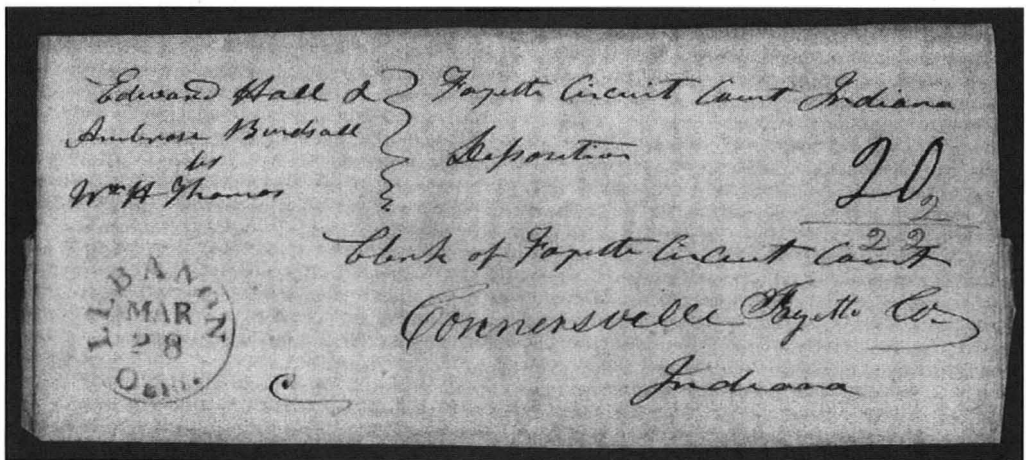 Edward Hall &
Ambrose Birdsall
vs
Wm H Thomas
Fayette Circuit Court Indiana
Deposition
20
2
22
Clerk of Fayette Circuit Court
Connersville Fayette Co
Indiana
LEBANON
MAR
28